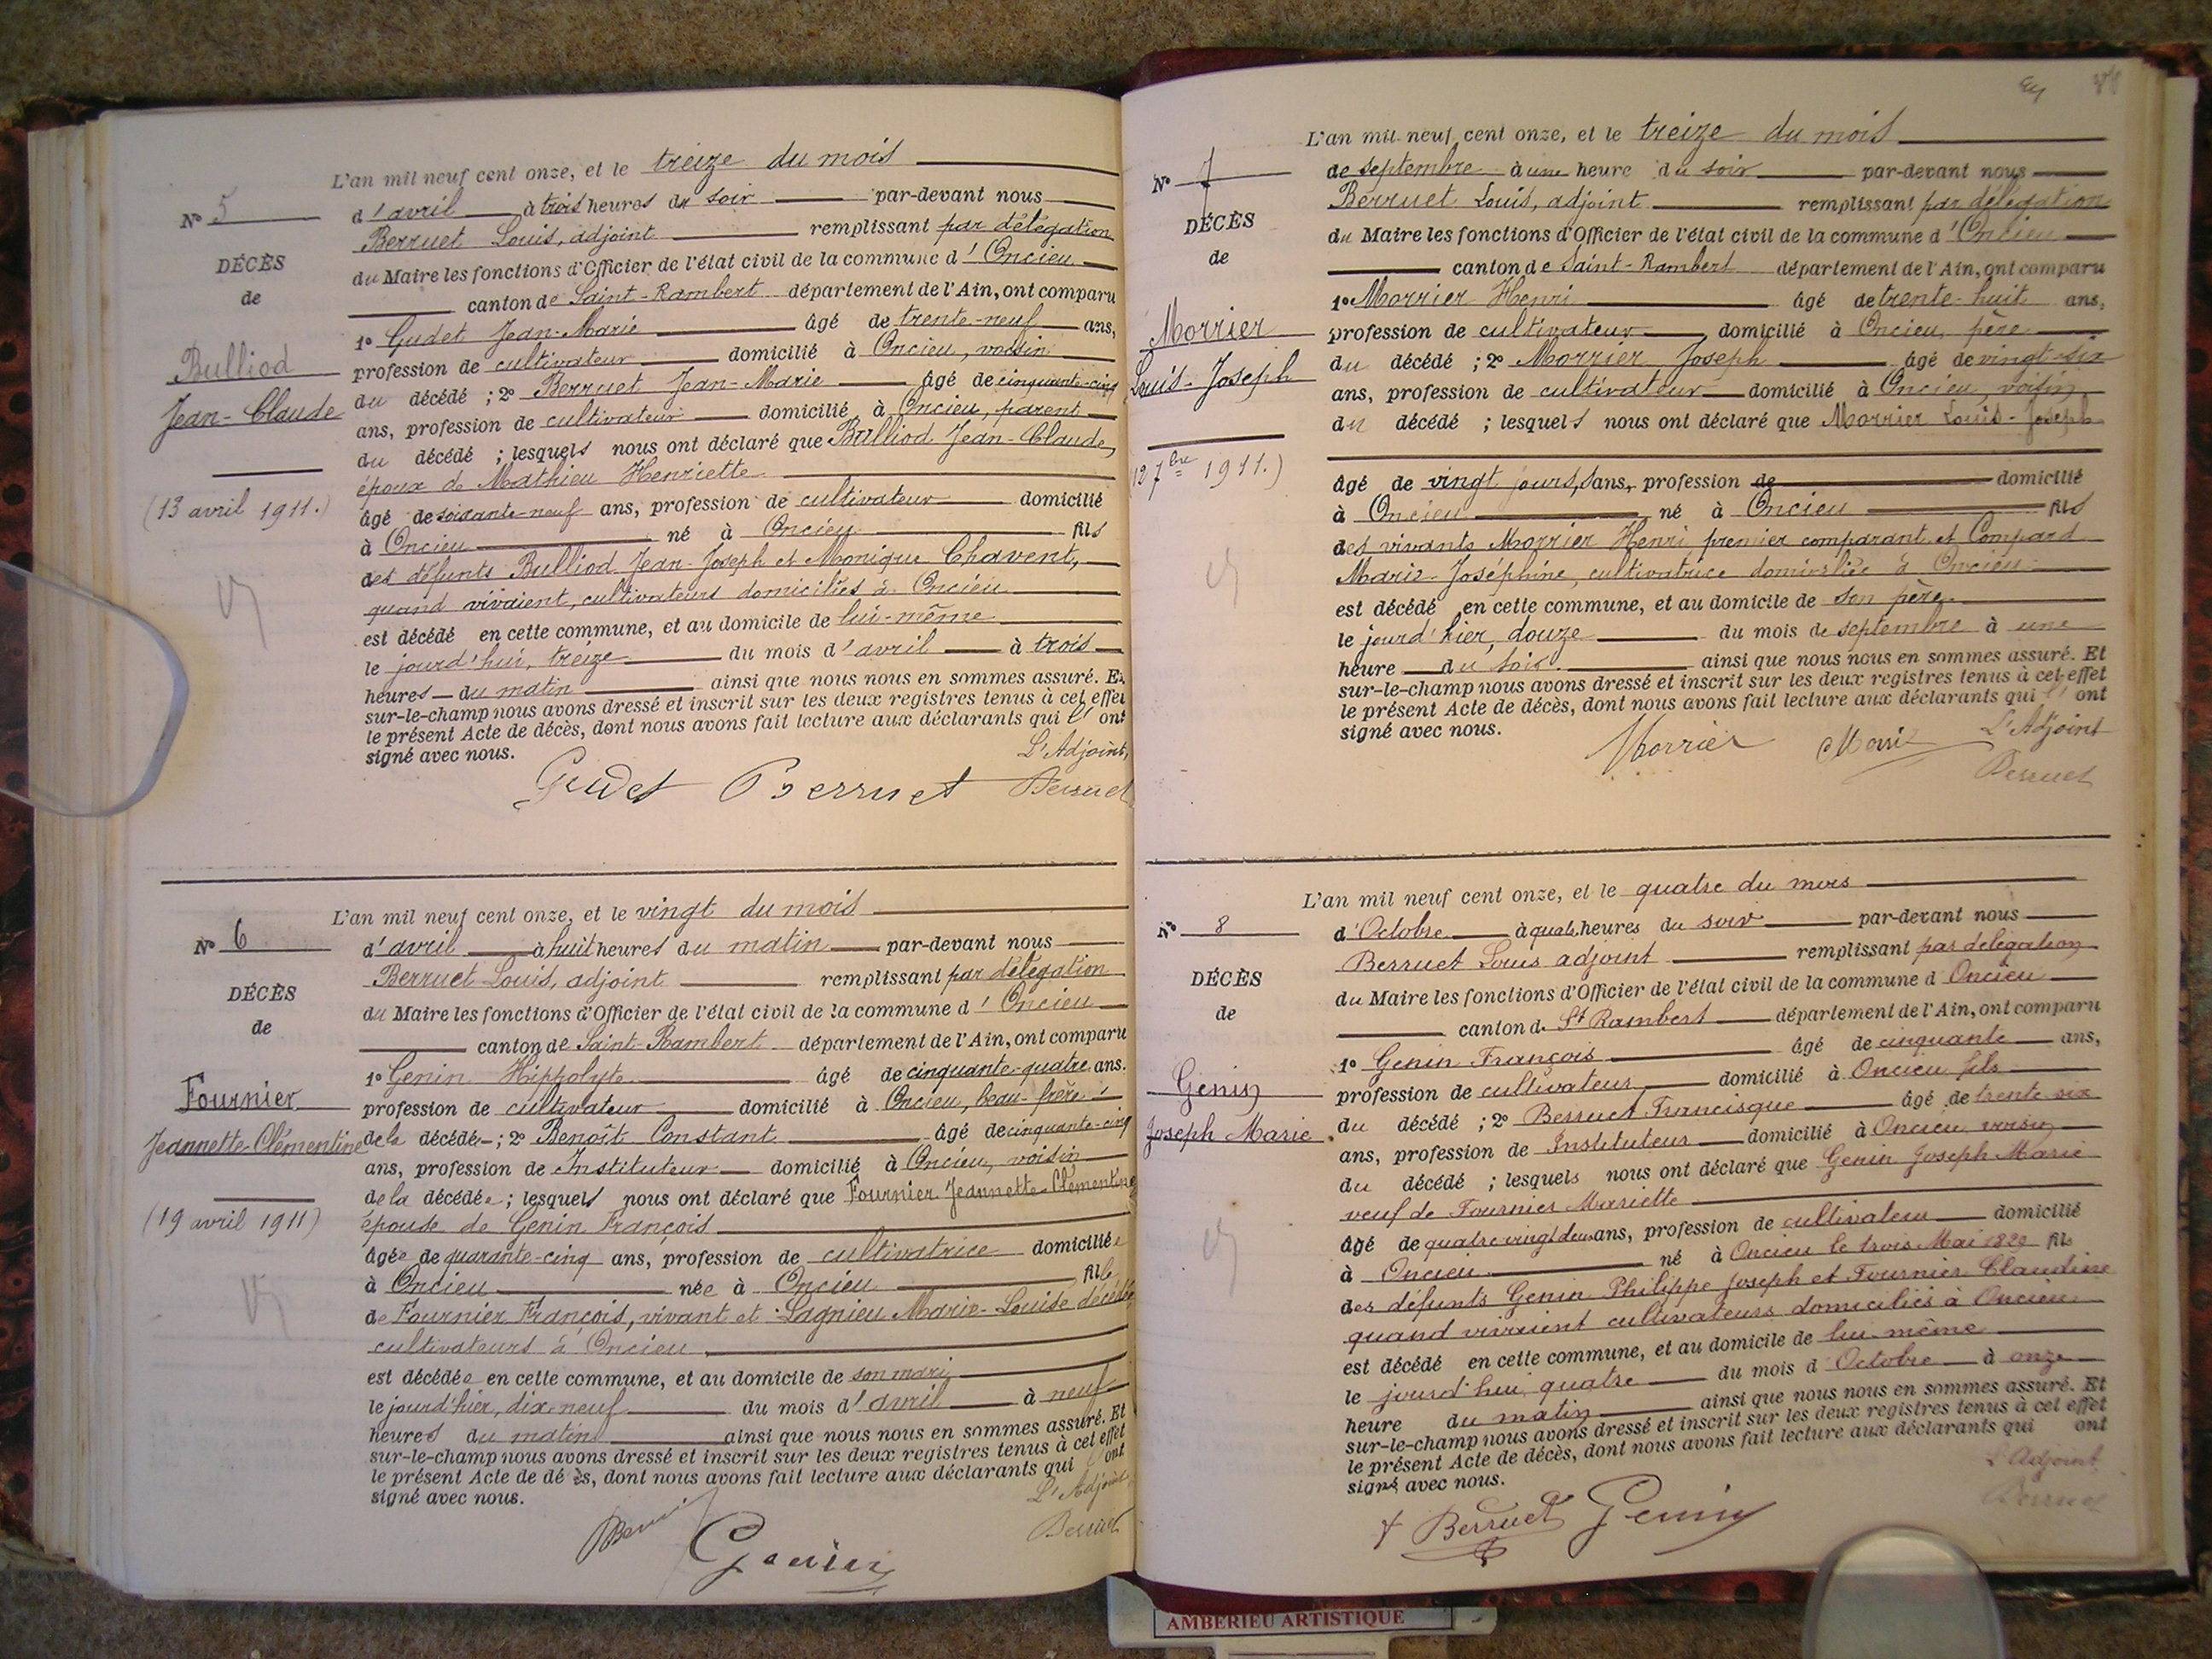 L'an mil neuf cent onze, et le treize du mois
N° 5
d'avril à trois heures du soir par-devant nous
Berruet Louis, adjoint remplissant par délégation
DÉCÈS
du Maire les fonctions d'Officier de l'état civil de la commune d'Oncieu
de
canton de Saint-Rambert département de l'Ain, ont comparu
1° Gudet Jean-Marie âgé de trente-neuf ans,
Bulliod
profession de cultivateur domicilié à Oncieu, voisin
du décédé ; 2° Berruet Jean-Marie âgé de cinquante-cinq
Jean-Claude
ans, profession de cultivateur domicilié à Oncieu, parent
du décédé ; lesquels nous ont déclaré que Bulliod Jean-Claude,
époux de Mathieu Henriette
(13 avril 1911.)
âgé de soixante-neuf ans, profession de cultivateur domicilié
à Oncieu né à Oncieu fils
des défunts Bulliod Jean-Joseph et Monique Chavent,
quand vivaient, cultivateurs domiciliés à Oncieu
est décédé en cette commune, et au domicile de lui-même
le jourd'hui, treize du mois d'avril à trois
heures du matin ainsi que nous nous en sommes assuré. Et
sur-le-champ nous avons dressé et inscrit sur les deux registres tenus à cet effet
le présent Acte de décès, dont nous avons fait lecture aux déclarants qui l' ont
signé avec nous.
L'Adjoint,
Gudet Berruet Berruet
L'an mil neuf cent onze, et le vingt du mois
N° 6
d'avril à huit heures du matin par-devant nous
Berruet Louis, adjoint remplissant par délégation
DÉCÈS
du Maire les fonctions d'Officier de l'état civil de la commune d'Oncieu
de
canton de Saint-Rambert département de l'Ain, ont comparu
1° Genin Hippolyte âgé de cinquante-quatre ans.
Fournier
profession de cultivateur domicilié à Oncieu, beau-frère
Jeannette-Clémentine
de la décédée ; 2° Benoît Constant âgé de cinquante-cinq
ans, profession de Instituteur domicilié à Oncieu, voisin
de la décédée ; lesquels nous ont déclaré que Fournier Jeannette-Clémentine
(19 avril 1911)
épouse de Genin François
âgée de quarante-cinq ans, profession de cultivatrice domiciliée
à Oncieu née à Oncieu fille
de Fournier François, vivant et Lagnieu Marie-Louise décédée
cultivateurs à Oncieu
est décédée en cette commune, et au domicile de son mari
le jourd'hier, dix-neuf du mois d'avril à neuf
heures du matin ainsi que nous nous en sommes assuré. Et
sur-le-champ nous avons dressé et inscrit sur les deux registres tenus à cet effet
le présent Acte de dé ès, dont nous avons fait lecture aux déclarants qui l' ont
signé avec nous.
L'Adjoint,
Genin Berruet
L'an mil neuf cent onze, et le treize du mois
N° 7
de septembre à une heure du soir par-devant nous
Berruet Louis, adjoint remplissant par délégation
DÉCÈS
du Maire les fonctions d'Officier de l'état civil de la commune d'Oncieu
de
canton de Saint-Rambert département de l'Ain, ont comparu
1° Morrier Henri âgé de trente-huit ans,
Morrier
profession de cultivateur domicilié à Oncieu, père
du décédé ; 2° Morrier Joseph âgé de vingt-six
Louis-Joseph
ans, profession de cultivateur domicilié à Oncieu, voisin
du décédé ; lesquels nous ont déclaré que Morrier Louis-Joseph
(12 7bre 1911.)
âgé de vingt jours, sans profession de domicilié
à Oncieu né à Oncieu fils
des vivants Morrier Henri premier comparant et Compard
Marie-Joséphine, cultivatrice domiciliée à Oncieu
est décédé en cette commune, et au domicile de son père
le jourd'hier, douze du mois de septembre à une
heure du soir. ainsi que nous nous en sommes assuré. Et
sur-le-champ nous avons dressé et inscrit sur les deux registres tenus à cet effet
le présent Acte de décès, dont nous avons fait lecture aux déclarants qui l' ont
signé avec nous.
Morrier L'Adjoint
Berruet
L'an mil neuf cent onze, et le quatre du mois
N° 8
d'Octobre à quatre heures du soir par-devant nous
Berruet Louis adjoint remplissant par délégation
DÉCÈS
du Maire les fonctions d'Officier de l'état civil de la commune d Oncieu
de
canton d. St Rambert département de l'Ain, ont comparu
1° Genin François âgé de cinquante ans,
Genin
profession de cultivateur domicilié à Oncieu fils
du décédé ; 2° Berruet Francisque âgé de trente six
Joseph Marie
ans, profession de Instituteur domicilié à Oncieu voisin
du décédé ; lesquels nous ont déclaré que Genin Joseph Marie
veuf de Fournier Mariette
âgé de quatre vingt deux ans, profession de cultivateur domicilié
à Oncieu né à Oncieu le trois Mai 1829 fils
des défunts Genin Philippe Joseph et Fournier Claudine
quand vivaient cultivateurs domiciliés à Oncieu
est décédé en cette commune, et au domicile de lui-même
le jourd'hui quatre du mois d'Octobre à onze
heure du matin ainsi que nous nous en sommes assuré. Et
sur-le-champ nous avons dressé et inscrit sur les deux registres tenus à cet effet
le présent Acte de décès, dont nous avons fait lecture aux déclarants qui ont
signé avec nous.
L'Adjoint
Berruet Genin Berruet
AMBERIEU ARTISTIQUE